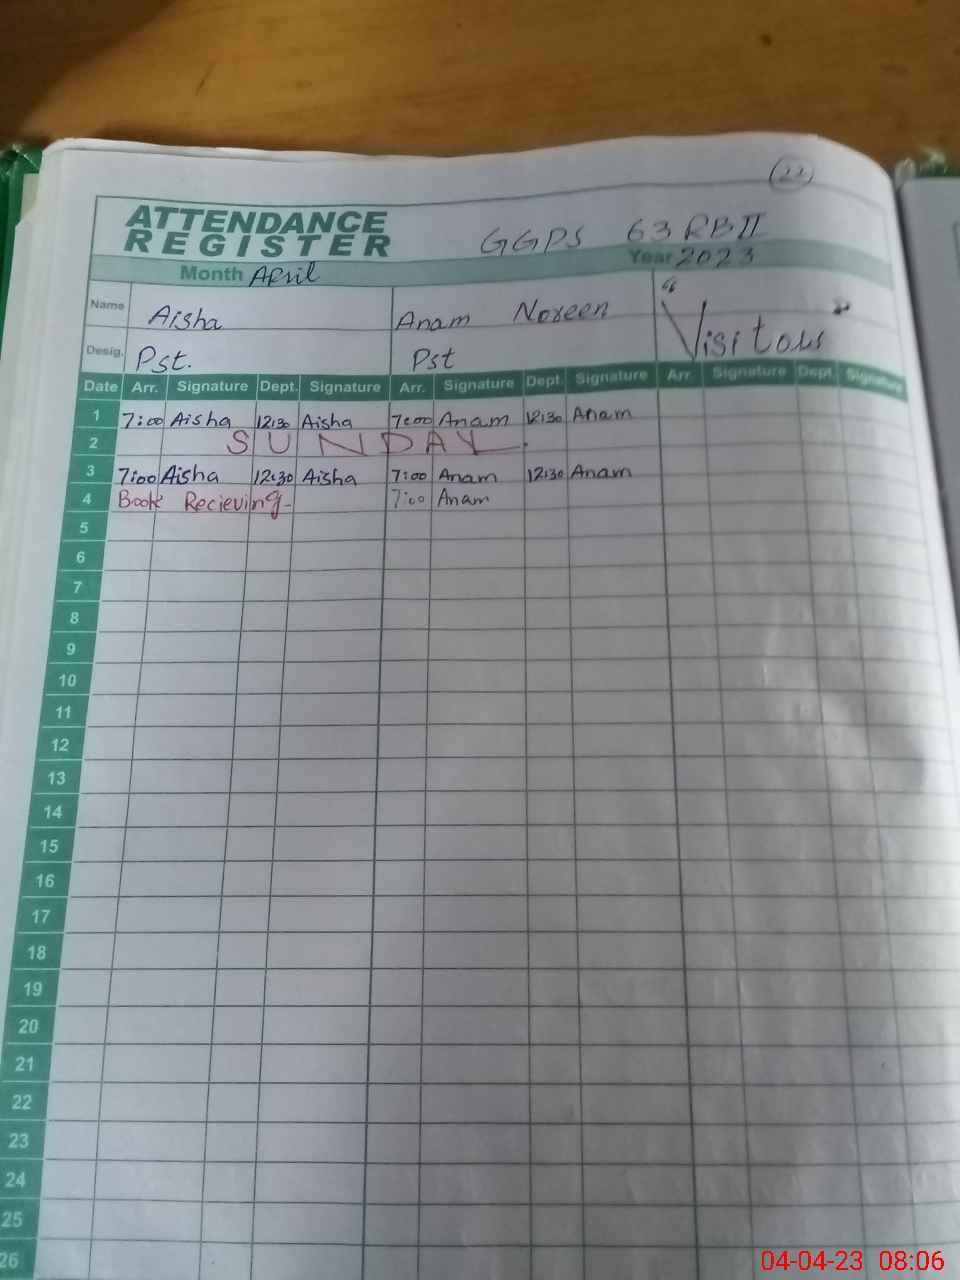 22
ATTENDANCE
REGISTER
GGPS 63 RB II
Month April Year 2023
Name Aisha Anam Noreen "Visitors"
Desig. Pst. Pst
Date Arr. Signature Dept. Signature Arr. Signature Dept. Signature Arr. Signature Dept. Signature
1 7:00 Aisha 12:30 Aisha 7:00 Anam 12:30 Anam
2 SUNDAY.
3 7:00 Aisha 12:30 Aisha 7:00 Anam 12:30 Anam
4 Book Recieving- 7:00 Anam
5
6
7
8
9
10
11
12
13
14
15
16
17
18
19
20
21
22
23
24
25
26
04-04-23 08:06